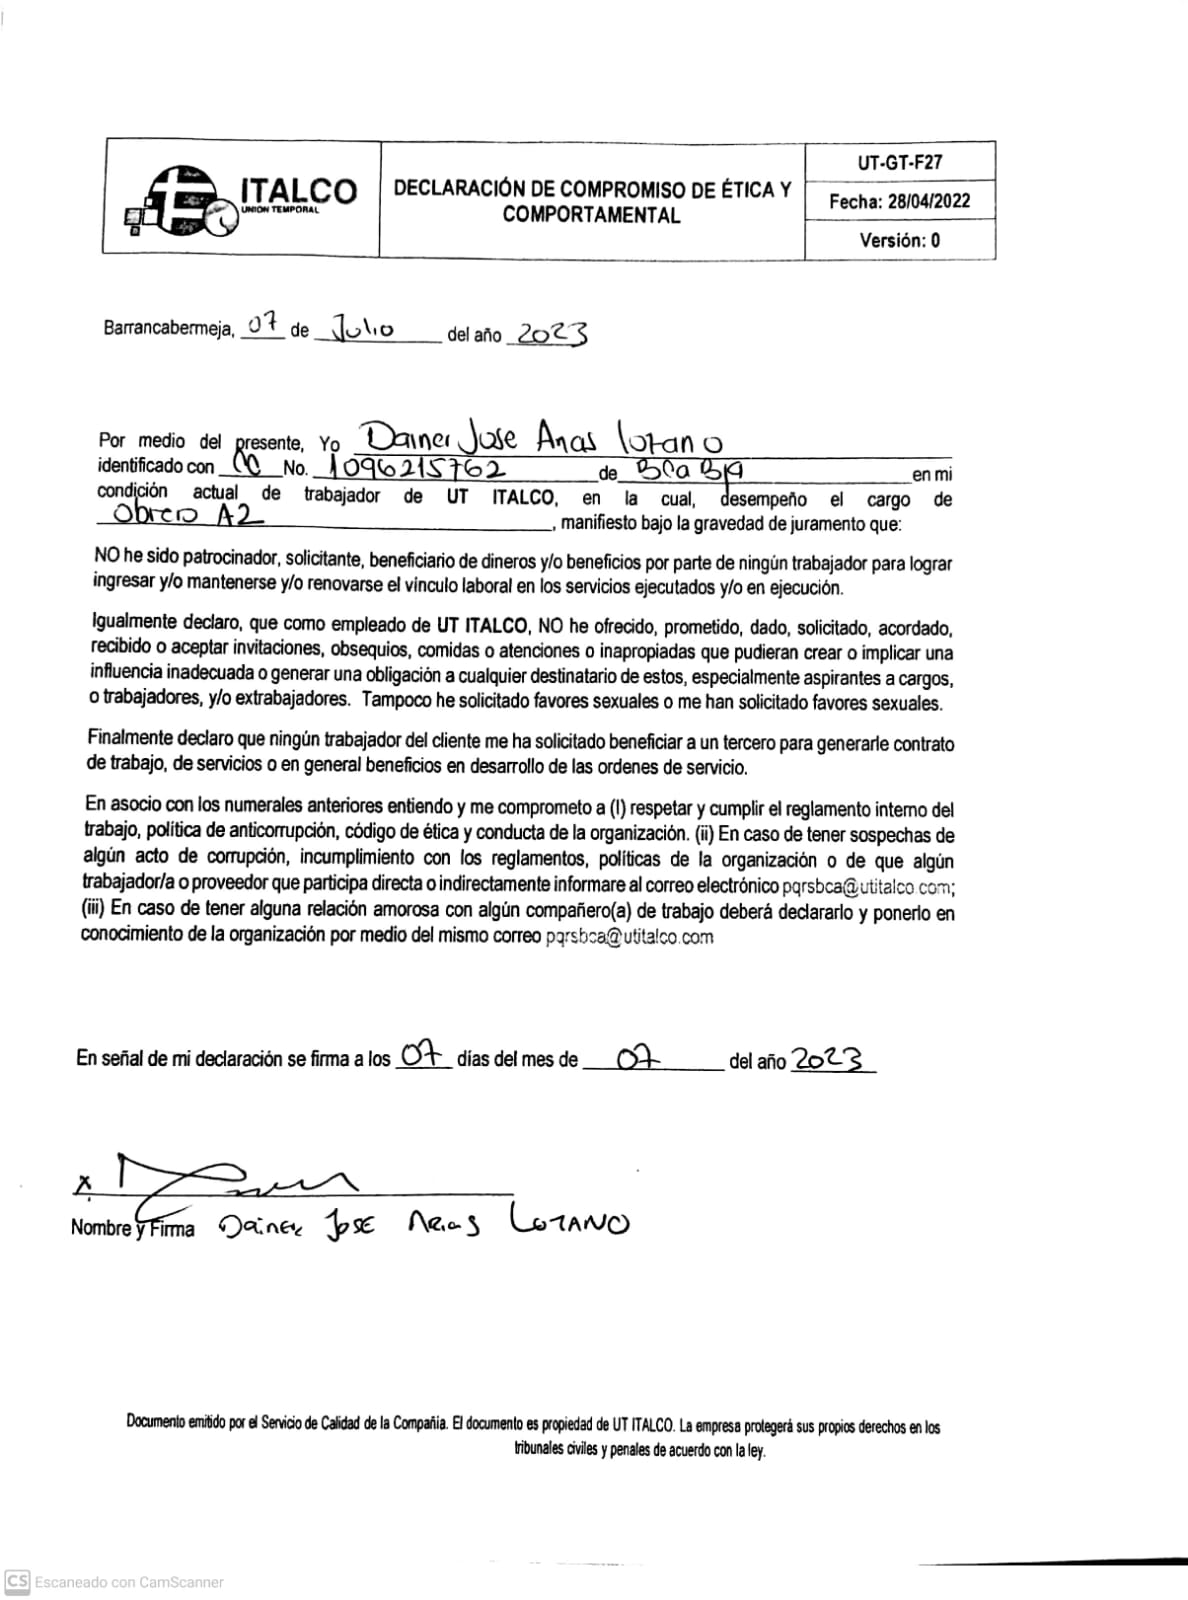 ITALCO
UNION TEMPORAL
DECLARACIÓN DE COMPROMISO DE ÉTICA Y
COMPORTAMENTAL
UT-GT-F27
Fecha: 28/04/2022
Versión: 0
Barrancabermeja, 07 de Julio del año 2023
Por medio del presente, Yo Dainer Jose Arias lozano
identificado con CC No. 1096215762 de BCa BJA en mi
condición actual de trabajador de UT ITALCO, en la cual, desempeño el cargo de
Obrero A2, manifiesto bajo la gravedad de juramento que:
NO he sido patrocinador, solicitante, beneficiario de dineros y/o beneficios por parte de ningún trabajador para lograr
ingresar y/o mantenerse y/o renovarse el vínculo laboral en los servicios ejecutados y/o en ejecución.
Igualmente declaro, que como empleado de UT ITALCO, NO he ofrecido, prometido, dado, solicitado, acordado,
recibido o aceptar invitaciones, obsequios, comidas o atenciones o inapropiadas que pudieran crear o implicar una
influencia inadecuada o generar una obligación a cualquier destinatario de estos, especialmente aspirantes a cargos,
o trabajadores, y/o extrabajadores. Tampoco he solicitado favores sexuales o me han solicitado favores sexuales.
Finalmente declaro que ningún trabajador del cliente me ha solicitado beneficiar a un tercero para generarle contrato
de trabajo, de servicios o en general beneficios en desarrollo de las ordenes de servicio.
En asocio con los numerales anteriores entiendo y me comprometo a (I) respetar y cumplir el reglamento interno del
trabajo, política de anticorrupción, código de ética y conducta de la organización. (ii) En caso de tener sospechas de
algún acto de corrupción, incumplimiento con los reglamentos, políticas de la organización o de que algún
trabajador/a o proveedor que participa directa o indirectamente informare al correo electrónico pqrsbca@utitalco.com;
(iii) En caso de tener alguna relación amorosa con algún compañero(a) de trabajo deberá declararlo y ponerlo en
conocimiento de la organización por medio del mismo correo pqrsbca@utitalco.com
En señal de mi declaración se firma a los 07 días del mes de 07 del año 2023
x
Nombre y Firma Dainer Jose Arias LOZANO
Documento emitido por el Servicio de Calidad de la Compañia. El documento es propiedad de UT ITALCO. La empresa protegerá sus propios derechos en los
tribunales civiles y penales de acuerdo con la ley.
CS Escaneado con CamScanner